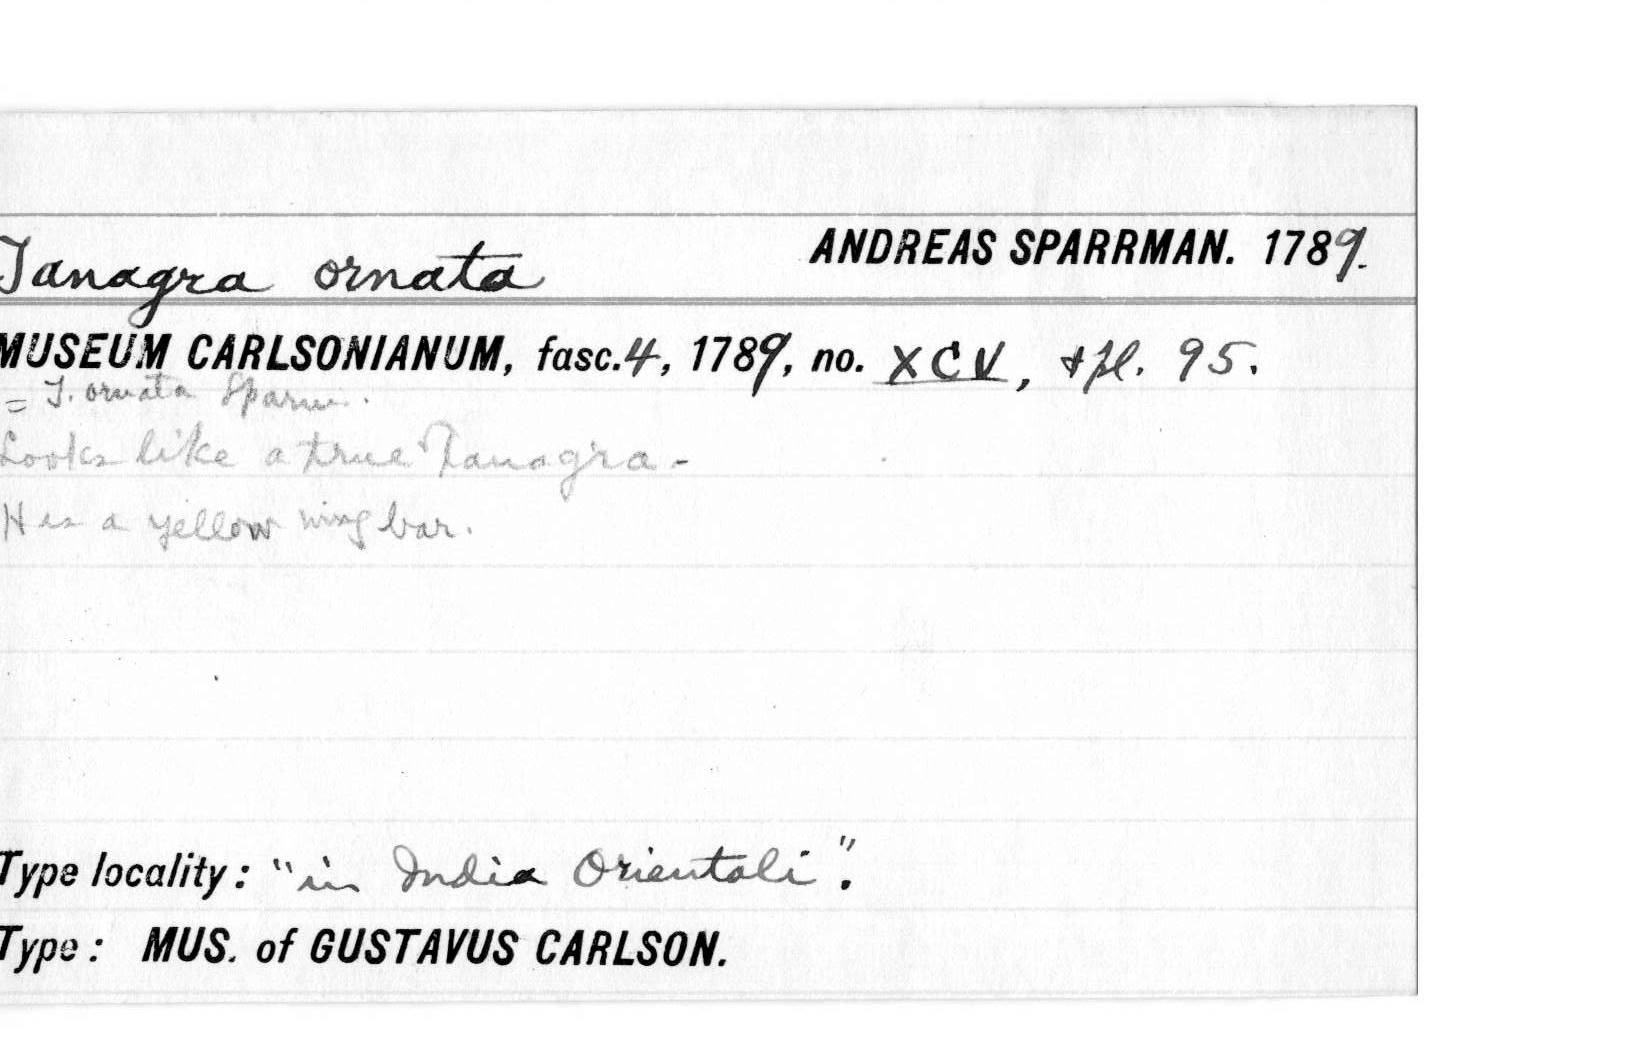 Tanagra ornata ANDREAS SPARRMAN. 1789.
MUSEUM CARLSONIANUM, fasc. 4, 1789, no. XCV, + pl. 95.
= T. ornata Sparrm.
Looks like a true Tanagra -
Has a yellow wing bar.
Type locality: "in India Orientali".
Type: MUS. of GUSTAVUS CARLSON.